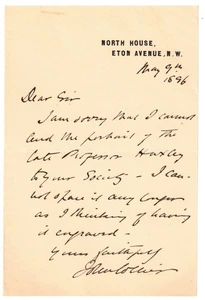 NORTH HOUSE,
ETON AVENUE, N.W.
May 9th
1896
Dear Sir
I am sorry that I cannot
lend the portrait of the
late Professor Huxley
to your Society - I can-
not spare it any longer
as I thinking of having
it engraved -
Yours faithfully
John Collier